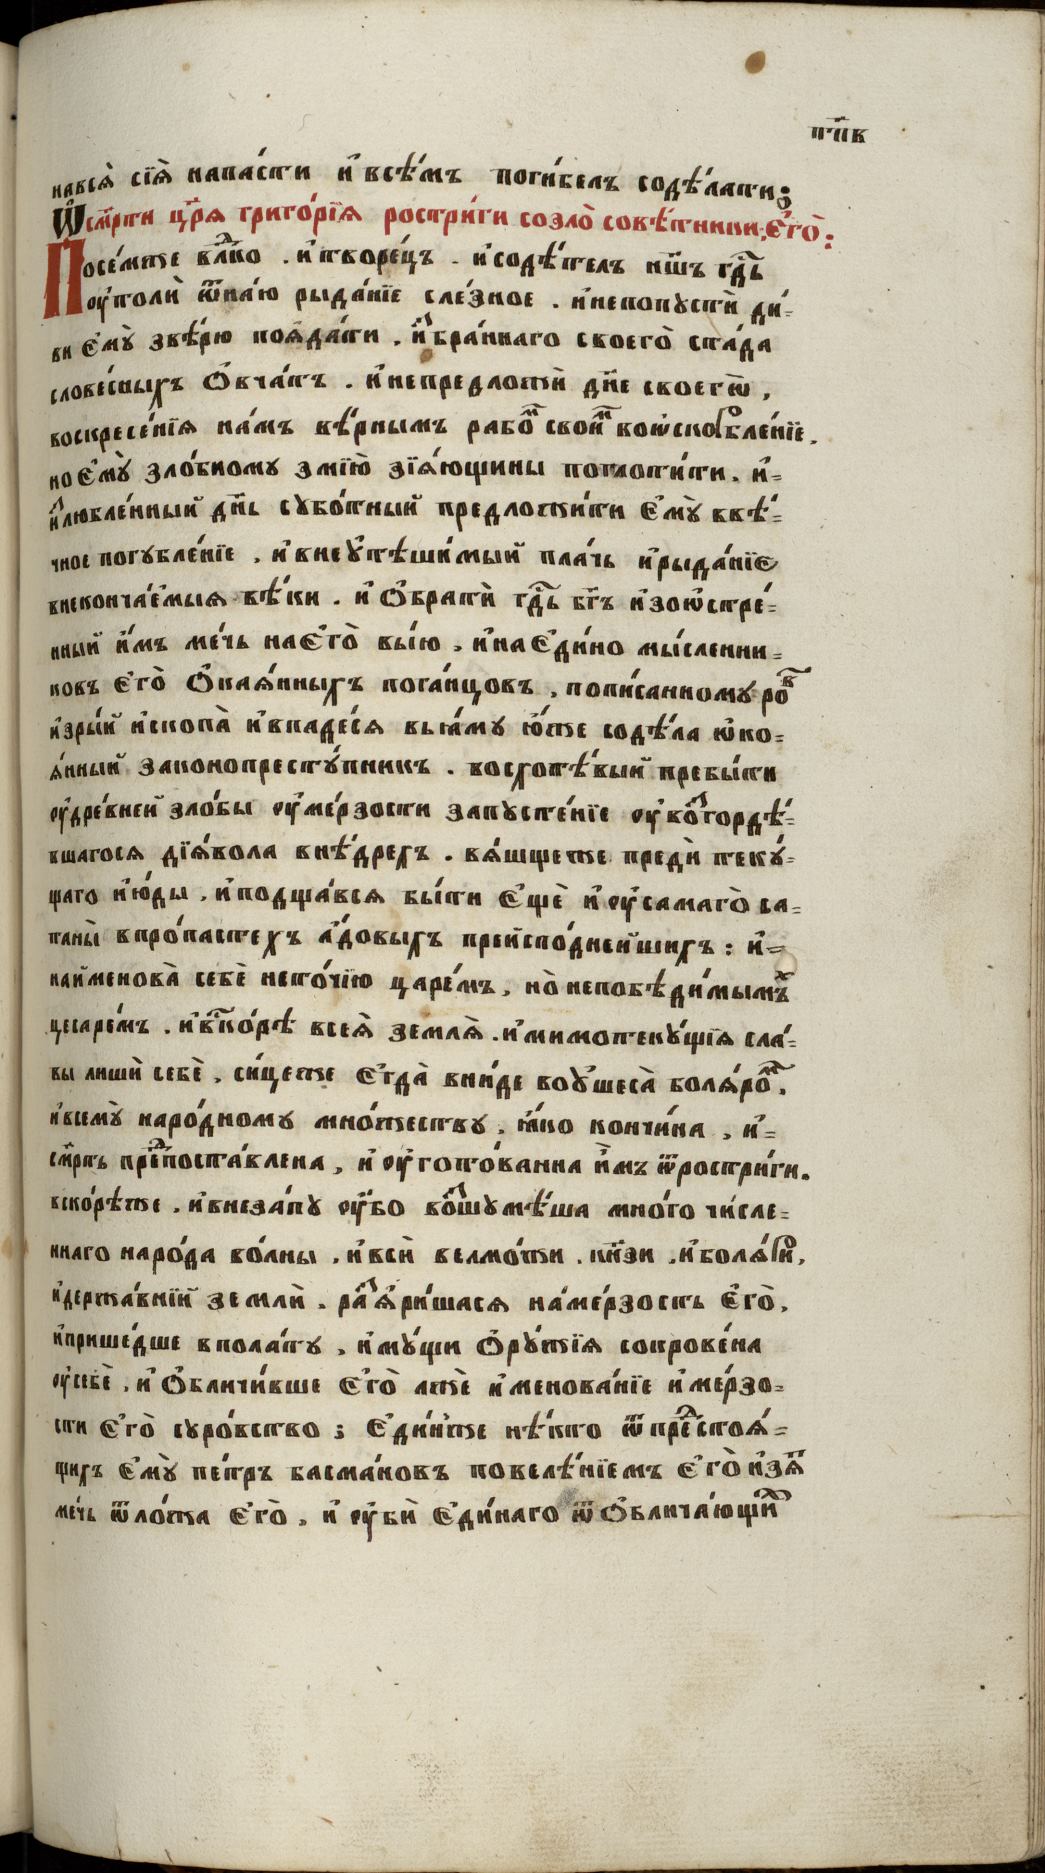 пп҃в
навсѧ̀ сїѧ̀ напа́сти и҆всѣ́мъ поги́белъ содѣ́лати;
Ѿсм҃рти цр҃ѧ григо́рїѧ ростри́ги созло̀ совѣ́тники, є҆го̀:
Посе́мже влⷣко . и҆творе́цъ . и҆содѣ́телъ нш҃ъ гдⷭ҇ь
ѹ҆толѝ ѿна́ю рыда́нїе сле́зное . и҆непопустѝ ди́-
ви є҆мꙋ̀ звѣ́рю поѧда́ти . и҆ⁿбра́ннаго своего̀ ста́да
слове́сныхъ ѻ҆вча́тъ . и҆непредложѝ дн҃е своегѡ̀ ,
воскресе́нїѧ на́мъ вѣ́рнымъ рабоⷨ свои́ⷨ воѡскорбле́нїе .
но є҆мꙋ̀ зло́бномꙋ змїю̀ зїѧ́ющины поглоти́ти . и҆-
и҆ⁿлюбле́нный дн҃ь сꙋбо́тный предложи́ти є҆мꙋ̀ ввѣ́-
чное погꙋбле́нїе . и҆внеꙋ҆тѣши́мый пла́чь и҆рыда́нїе
внеконча́емыѧ вѣ́ки . и҆ ѻ҆братѝ гдⷭ҇ь бг҃ъ и҆зоѡ҆стре́-
нный и҆́мъ ме́чь наєго̀ вы́ю . и҆на є҆ди́но мы́сленни-
ковъ є҆го̀ ѻ҆каѧ́нныхъ пога́нцовъ , попи́санномꙋ роⷡ
и҆зры́й и҆скопа̀ и҆впаде́сѧ въꙗ́мꙋ ю҆́же содѣ́ла ѡ҆ко-
ѧ́нный законопрестꙋ́пникъ . восхотѣ́вый пребы́ти
ѹ҆дре́вней зло́бы ѹ҆ме́рзости запꙋсте́нїе ѹ҆воⁿгордѣ́-
вшагосѧ дїѧ́вола внѣ́дрехъ . вѧ́щшеже предѝ текꙋ́-
щаго и҆ю́ды . и҆подща́всѧ бы́ти є҆щѐ и҆ ѹ҆самаго̀ са-
таны̀ впро́пастехъ а҆́довыхъ преиспо́днейшихъ : и҆-
найменова̀ себѐ нето́чїю царе́мъ , но̀ непобѣди́мымъ
цесаре́мъ . и҆вско́рѣ всеѧ̀ землѧ̀ . и҆мимотекꙋ́щїѧ сла́-
вы лишѝ себѐ . си́цеже є҆гда̀ вни́де воꙋ҆шеса̀ болѧ́роⷨ .
и҆всемꙋ̀ наро́дномꙋ мно́жествꙋ . ꙗ҆́ко кончи́на , и҆-
см҃рть преⷣпоста́влена , и҆ ѹ҆гото́ванна и҆́мъ ѿростри́ги .
вско́рѣже . и҆внеза́пꙋ ѹ҆́бо воⁿшꙋмѣ́ша мно́го чи́сле-
ннаго наро́да во́лны , и҆всѝ велмо́жи . кн҃зи . и҆болѧ́ри ,
и҆держа́внїй землѝ . раⁿѧ҆ри́шасѧ наме́рзость є҆го̀ ,
и҆прише́дше вполатꙋ , и҆мꙋ́щи ѻ҆рꙋ́жїѧ сокрове́на
ѹ҆себѐ . и҆ ѻ҆бличи́вше є҆го̀ лже́ и҆менова́нїе и҆ме́рзо-
сти є҆го̀ сꙋро́вство ; є҆ди́нже нѣ́кто ѿ преⷣстоѧ́-
щихъ є҆мꙋ̀ пе́тръ басма́новъ повелѣ́нїемъ є҆го̀ и҆зѧⷮ
ме́чь ѿло́жа є҆го̀ . и҆ ѹ҆бѝ є҆ди́наго ѿ ѻ҆блича́ющиⷯ